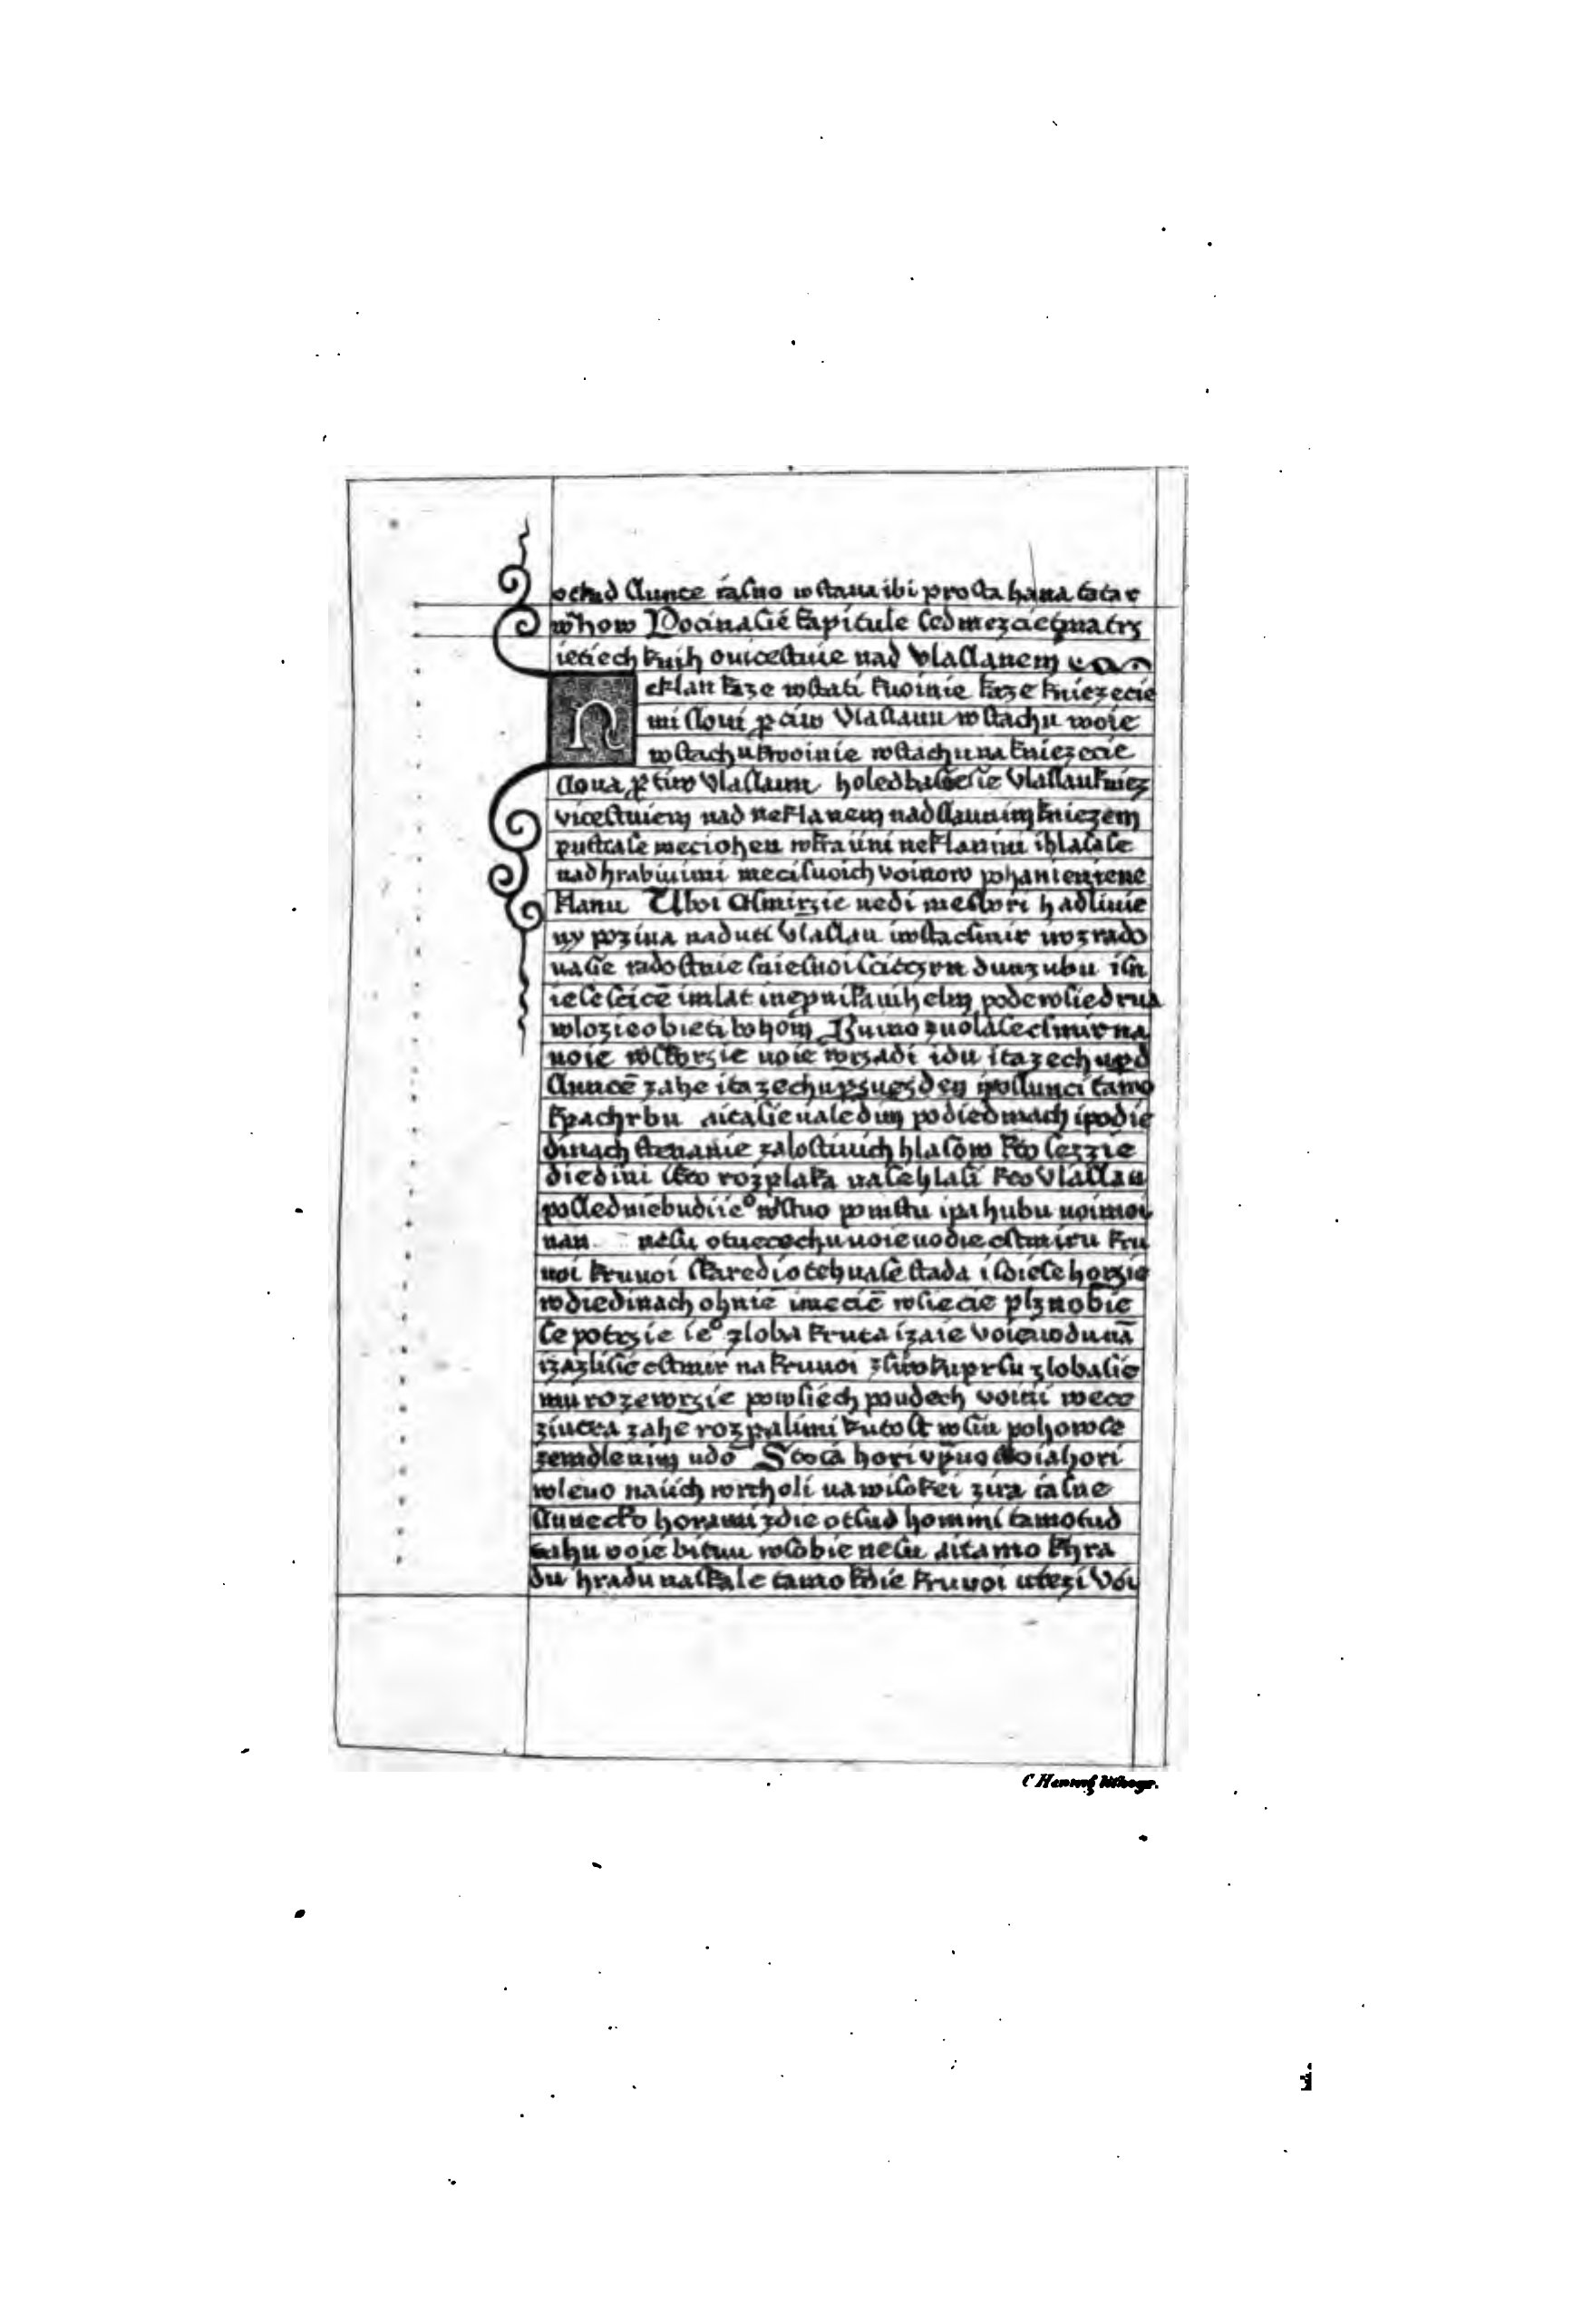 otkud slunce iasno wstaua ibi prosta hana tatar
whow Pocinasie kapitule sedmezcietma trz
ietiech knih ouicestuie nad Vlaslauem
Neklan kaze wstati kuoinie kaze kniezecie
mi sloui ptiw Vlaslauu wstachu woie
wstachu kwoinie wstachu na kniezecie
sloua ptiw Vlaslauu holedbasese Vlaslau kniez
vicestuiem nad neklanem nad slaunim kniezem
pustase meci ohen wkraiini neklanini ihlasase
nad hrabiuimi meci suoich voinow pohanienie ne
klanu
ny poziua naduti Vlaslau iwsta csmir iuozrado
uasie radostnie snie suoi scit czrn duuzubu isn
ie se scitē imlat inepnikauih elm pode wsie drua
wlozie obieti bohom Buino zuolase csmir na
uoie wskorzie uoie wrzadi idu itazechu prd
sluncē zahe itazechu ден iposlunci tamo
kpachrbu aitasie uale dim po diedinach ipodie
dinach stenanie zalostiuich hlasow kto sezzie
diedini kto rozplaka uase hlasi kto Vlaslau
poslednie budi ie° wstuo pomstu ipahubu uoi moi
nan nesu otuecechu uoieuodie cstmiru kru
uoi kruuoi skaredi otehnase stada isdiese horzie
wdiedinach ohnie imeciē wsiecie plznobie
se potrzie ie° zloba kruta izaie voieuodu nā
izazlisie cstmir na kruuoi zsiroku prsu zloba sie
mu rozewrzie powsiech pudech voini wece
ziutra zahe rozpalimi kutost wsiu pohow se
zemdlenim udō Stota hori vprauo stoia hori
wleuo naiich wrcholi na wisokei zira iasne
slunecko horami zdie otsud hommi tamotud
tahu voie bitiu wsobie nesu aitamo khra
du hradu naskale tamo kdie kruuoi utezi Voi
C Hennig lithogr.